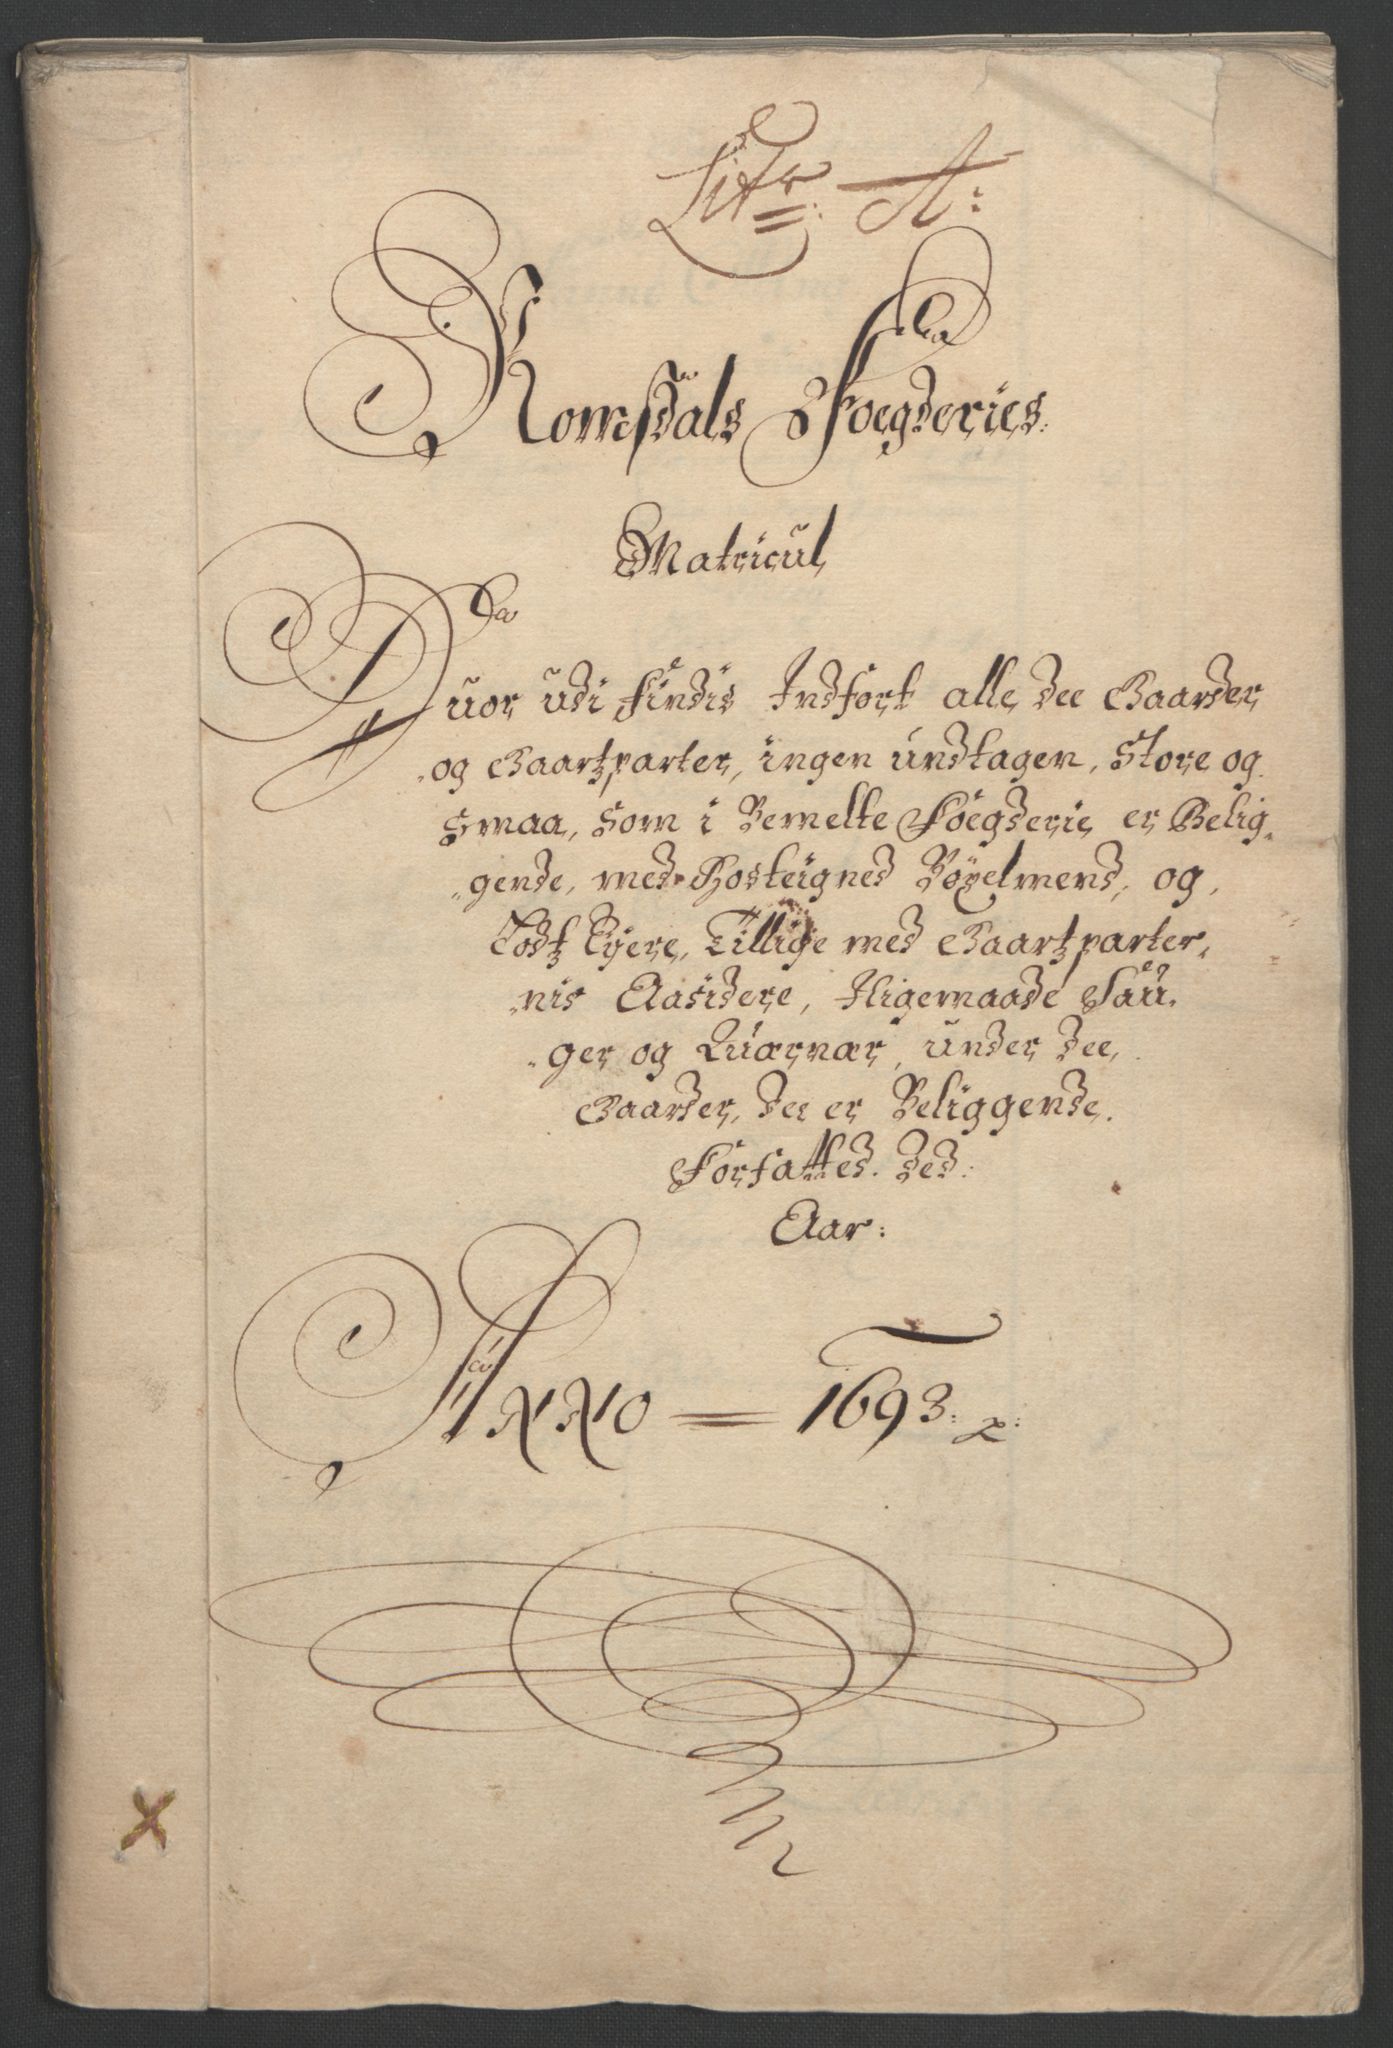 Litr: A:
Romsdals Foegderies
Matricul
Huor udi findis Indført alle dee Gaarder
og Gaartzparter, ingen undtagen, Store og
Smaa, Som i bemelte Foegderie er Belig-
gende, med Hosteigned Böxelmend, og
Jodtz Eyere, Tillige med Gaartzparter-
nis Aasidere, Iligemaade Sau-
ger og Quærner, under dee
Gaarder, dee er Beliggende.
Forfatted. ded:
Aar:
ANNO = 1693: